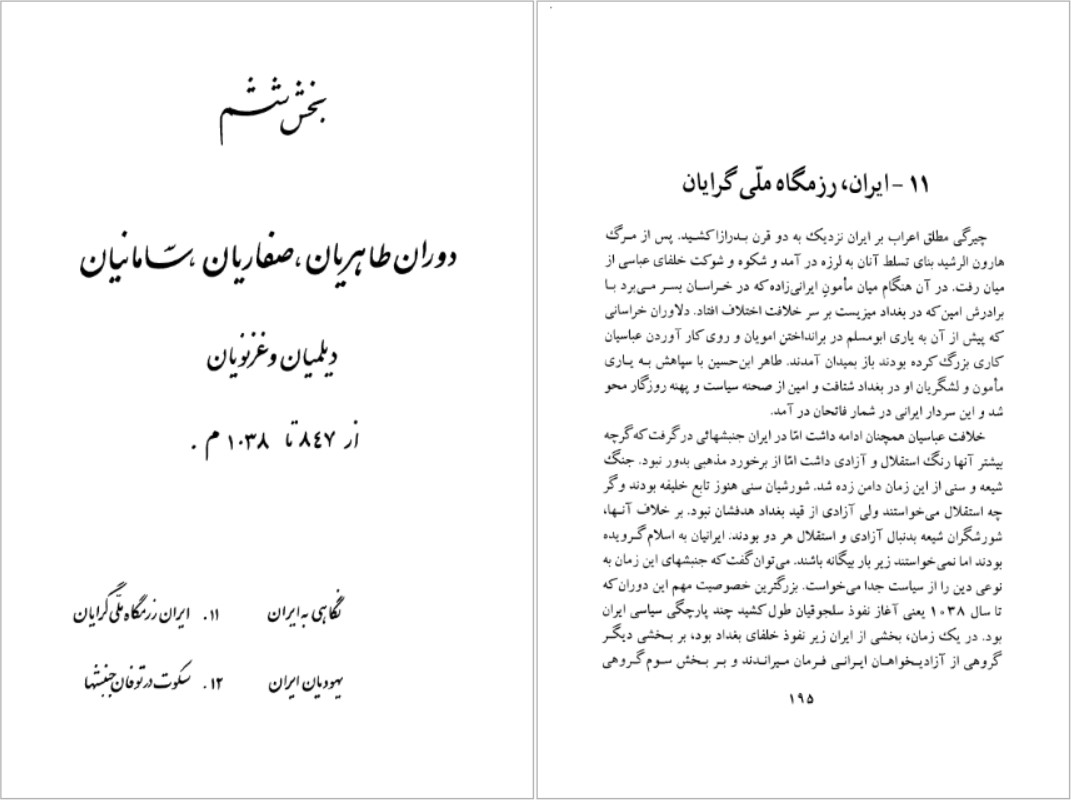 بخش ششم
دوران طاهریان، صفاریان، سامانیان
دیلمیان و غزنویان
از ٨٤٧ تا ١٠٣٨ م .
نگاهی به ایران ١١. ایران رزمگاه ملّی گرایان
یهودیان ایران ١٢. سکوت در توفان جنبشها
١١ - ایران، رزمگاه ملّی گرایان
چیرگی مطلق اعراب بر ایران نزدیک به دو قرن بدرازا کشید. پس از مرگ
هارون الرشید بنای تسلط آنان به لرزه در آمد و شکوه و شوکت خلفای عباسی از
میان رفت. در آن هنگام میان مأمونِ ایرانی‌زاده که در خراسان بسر می‌برد با
برادرش امین که در بغداد میزیست بر سر خلافت اختلاف افتاد. دلاوران خراسانی
که پیش از آن به یاری ابومسلم در برانداختن امویان و روی کار آوردن عباسیان
کاری بزرگ کرده بودند باز بمیدان آمدند. طاهر ابن‌حسین با سپاهش به یاری
مأمون و لشگریان او در بغداد شتافت و امین از صحنه سیاست و پهنه روزگار محو
شد و این سردار ایرانی در شمار فاتحان در آمد.
خلافت عباسیان همچنان ادامه داشت امّا در ایران جنبشهائی در گرفت که گرچه
بیشتر آنها رنگ استقلال و آزادی داشت امّا از برخورد مذهبی بدور نبود. جنگ
شیعه و سنی از این زمان دامن زده شد. شورشیان سنی هنوز تابع خلیفه بودند و گر
چه استقلال می‌خواستند ولی آزادی از قید بغداد هدفشان نبود. بر خلاف آنها،
شورشگران شیعه بدنبال آزادی و استقلال هر دو بودند. ایرانیان به اسلام گرویده
بودند اما نمی‌خواستند زیر بار بیگانه باشند. می‌توان گفت که جنبشهای این زمان به
نوعی دین را از سیاست جدا می‌خواست. بزرگترین خصوصیت مهم این دوران که
تا سال ١٠٣٨ یعنی آغاز نفوذ سلجوقیان طول کشید چند پارچگی سیاسی ایران
بود. در یک زمان، بخشی از ایران زیر نفوذ خلفای بغداد بود، بر بخشی دیگر
گروهی از آزادیخواهان ایرانی فرمان میراندند و بر بخش سوم گروهی
١٩٥